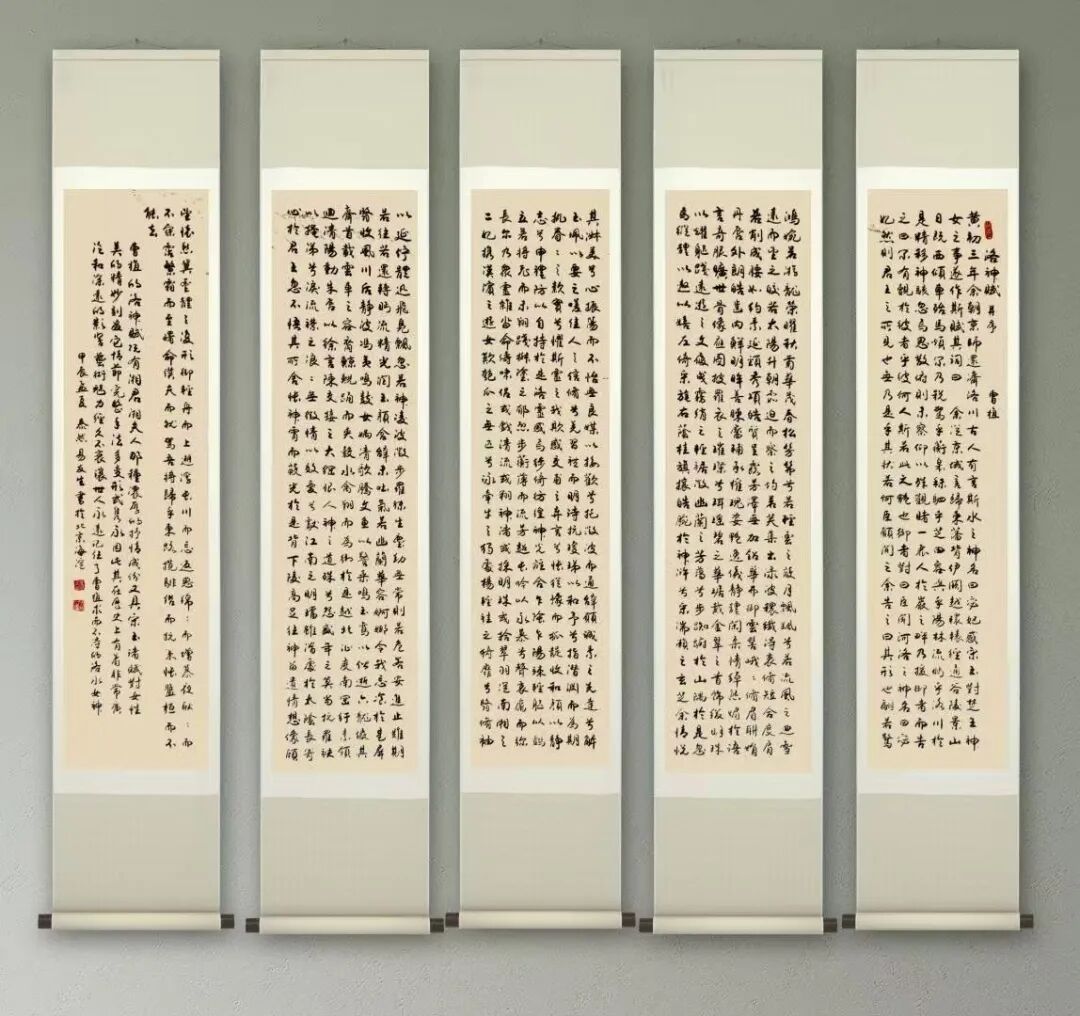 洛神賦 并序 曹植
黄初三年余朝京師還濟洛川古人有言斯水之神名曰宓妃感宋玉對楚王神
女之事遂作斯賦其詞曰 余從京域言歸東藩背伊闕越轘轅經通谷陵景山
日既西傾車殆馬煩尔乃税駕乎蘅皋秣駟乎芝田容與乎陽林流眄乎洛川於
是精移神駭忽焉思散俯則未察仰以殊觀睹一麗人於巖之畔乃援御者而告
之曰尔有覿於彼者乎彼何人斯若此之艷也御者對曰臣聞河洛之神名曰宓
妃然則君王之所見也無乃是乎其狀若何臣願聞之余告之曰其形也翩若驚
鴻婉若游龍榮曜秋菊華茂春松髣髴兮若輕雲之蔽月飄飖兮若流風之迴雪
遠而望之皎若太陽升朝霞迫而察之灼若芙蕖出渌波穠纖得衷脩短合度肩
若削成腰如約素延頸秀項皓質呈露芳澤無加鉛華弗御雲髻峨峨脩眉聯娟
丹唇外朗皓齒内鮮明眸善睞靨輔承權瓌姿艷逸儀静體閑柔情綽態媚於語
言奇服曠世骨像應圖披羅衣之璀粲兮珥瑶碧之華琚戴金翠之首飾綴明珠
以耀軀踐遠遊之文履曳霧綃之輕裾微幽蘭之芳藹兮步踟躕於山隅於是忽
焉縱體以遨以嬉左倚采旄右蔭桂旗攘皓腕於神滸兮采湍瀨之玄芝余情悦
其淑美兮心振蕩而不怡無良媒以接歡兮托微波而通辭願誠素之先達兮解
玉佩以要之嗟佳人之信脩兮羌習禮而明詩抗瓊珶以和予兮指潛淵而為期
執眷眷之款實兮懼斯靈之我欺感交甫之棄言兮悵猶豫而狐疑收和顔以静
志兮申禮防以自持於是洛靈感焉徙倚彷徨神光離合乍陰乍陽竦輕軀以鶴
立若將飛而未翔踐椒塗之郁烈步蘅薄而流芳超長吟以永慕兮聲哀厲而弥
長尔乃衆靈雜遝命儔嘯侶或戲清流或翔神渚或採明珠或拾翠羽從南湘之
二妃携漢濱之遊女歎匏瓜之無匹兮詠牽牛之獨處揚輕袿之猗靡兮翳脩袖
以延佇體迅飛鳧飄忽若神凌波微步羅襪生塵動無常則若危若安進止難期
若往若還轉眄流精光潤玉顔含辭未吐氣若幽蘭華容婀娜令我忘湌於是屏
翳收風川后静波馮夷鳴鼓女媧清歌騰文魚以警乘鳴玉鸞以偕逝六龍儼其
齊首載雲車之容裔鯨鯢踊而夾轂水禽翔而為衛於是越北沚度南岡紆素領
迴清陽動朱唇以徐言陳交接之大綱恨人神之道殊兮怨盛年之莫當抗羅袂
以掩涕兮淚流襟之浪浪無微情以效愛兮獻江南之明璫雖潛處於太陰長寄
心於君王忽不悟其所舍悵神霄而蔽光於是背下陵高足往神留遺情想像顧
望懷愁冀靈體之復形御輕舟而上遡浮長川而忘返思綿綿而增慕夜耿耿而
不寐霑繁霜而至曙命僕夫而就駕吾將歸乎東路攬騑轡而抗策悵盤桓而不
能去
曹植的洛神賦既有湘君湘夫人那種濃厚的抒情成份又具宋玉諸賦對女性
美的精妙刻畫它情節完整手法多變形式隽永因此其在歷史上有着非常廣
泛和深遠的影響藝術魅力經久不衰讓世人永遠记住了曹植求而不得的洛水女神
甲辰孟夏 易友生書於北京海淀